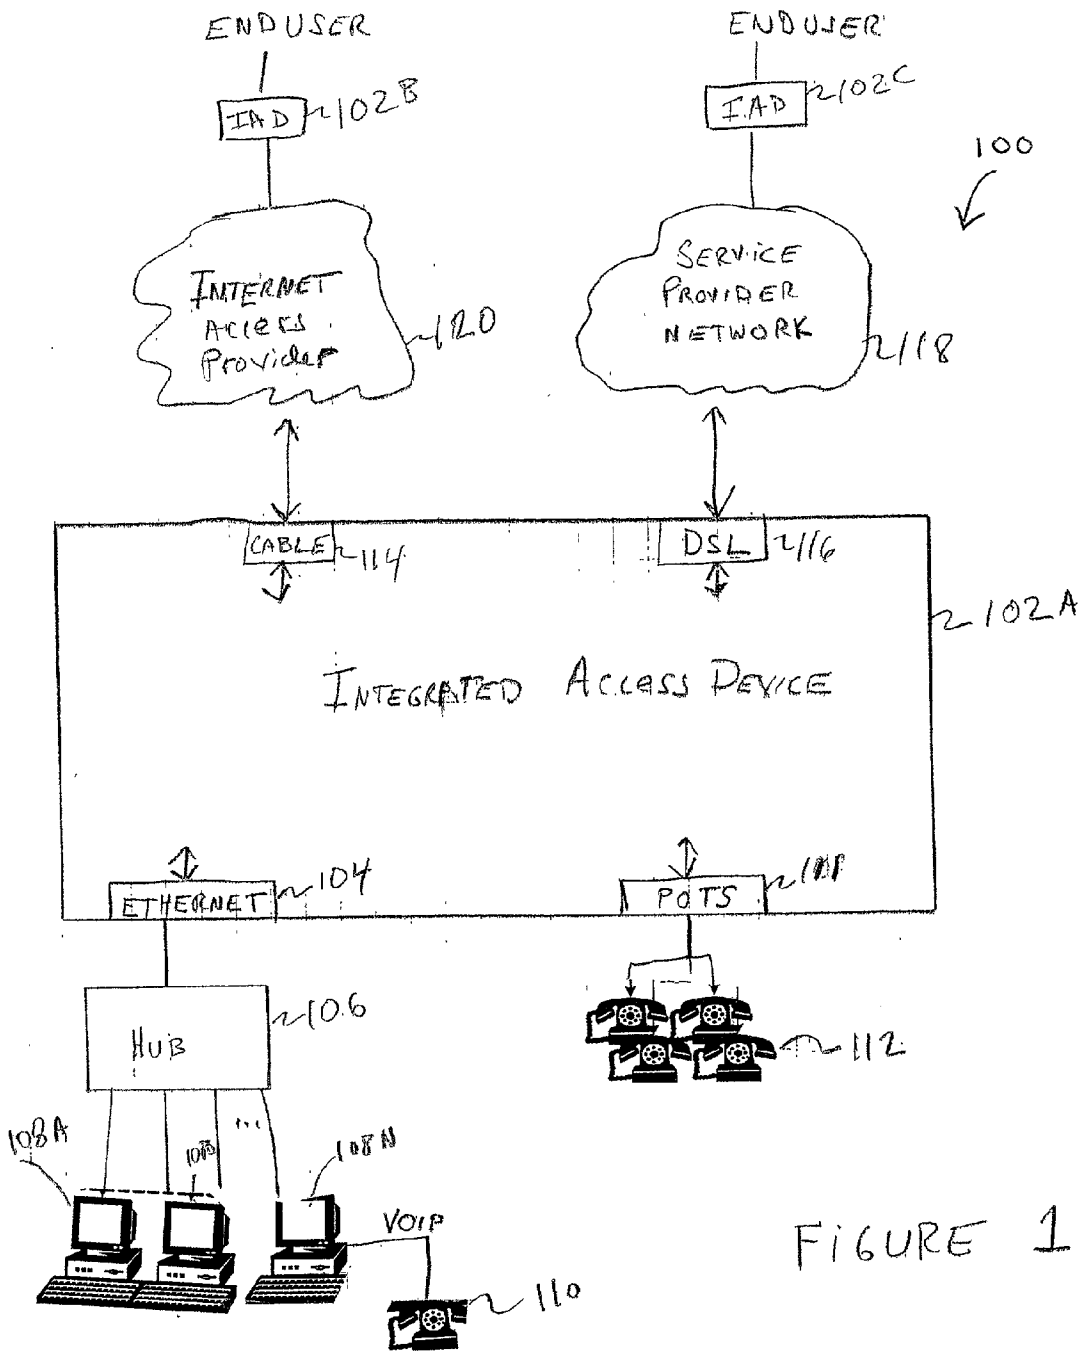 ENDUSER
ENDUSER
IAD
102B
IAD
102C
100
INTERNET
ACCESS
Provider
120
SERVICE
PROVIDER
NETWORK
118
CABLE
114
DSL
116
102A
INTEGRATED ACCESS DEVICE
ETHERNET
104
POTS
HUB
106
112
108A
108B
...
108N
VOIP
110
FIGURE 1